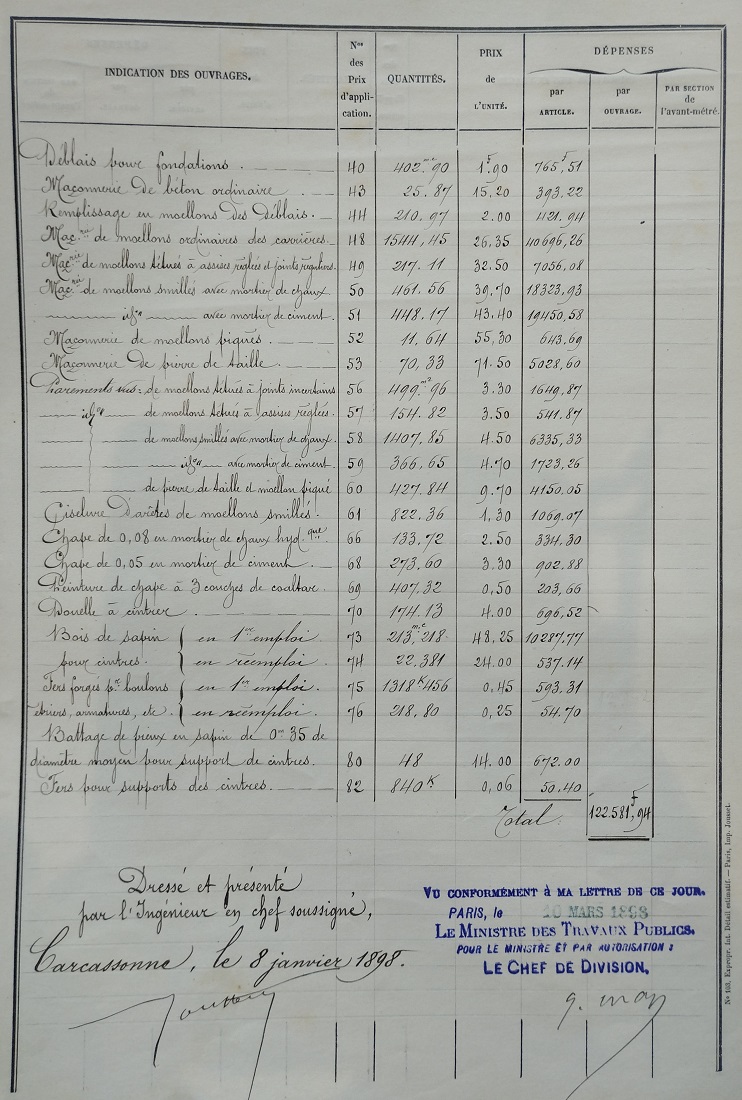 INDICATION DES OUVRAGES. Nos des Prix d'application. QUANTITÉS. PRIX de L'UNITÉ. DÉPENSES par ARTICLE. par OUVRAGE. PAR SECTION de l'avant-métré.
Déblais pour fondations. 40 402mc90 1f.90 765f,51
Maçonnerie de béton ordinaire 43 25.87 15,20 393.22
Remplissage en moellons des déblais. 44 210.97 2.00 421.94
Maçrie de moellons ordinaires des carrières. 48 1544,45 26,35 40696,26
Maçrie de moellons têtués à assises réglées et joints réguliers. 49 217.11 32.50 7056,08
Maçrie de moellons smillés avec mortier de chaux 50 461.56 39.70 18323,93
id. avec mortier de ciment. 51 448.17 43.40 19450,58
Maçonnerie de moellons piqués. 52 11,64 55,30 643.69
Maçonnerie de pierre de taille. 53 70,33 71.50 5028,60
Parements vus: de moellons têtués à joints incertains 56 499.m296 3.30 1649,87
id. de moellons têtués à assises réglées. 57 154.82 3.50 541.87
de moellons smillés avec mortier de chaux. 58 1407,85 4.50 6335,33
id. avec mortier de ciment. 59 366,65 4.70 1723,26
de pierre de taille et moellon piqué 60 427.84 9.70 4150.05
Ciselure d'arêtes de moellons smillés. 61 822.36 1,30 1069.07
Chape de 0,08 en mortier de chaux hyd.que. 66 133,72 2.50 334,30
Chape de 0,05 en mortier de ciment. 68 273,60 3.30 902.88
Peinture de chape à 3 couches de coaltar. 69 407.32 0,50 203,66
Douelle à cintrer 70 174.13 4.00 696,52
Bois de sapin { en 1er emploi. 73 213,mc218 48,25 10287.77
pour cintres. { en réemploi. 74 22,381 24.00 537.14
Fers forgés pr boulons { en 1er emploi. 75 1318K456 0,45 593.31
étriers, armatures, etc. { en réemploi. 76 218.80 0,25 54.70
Battage de pieux en sapin de 0m35 de
diamètre moyen pour support de cintres. 80 48 14.00 672.00
Fers pour supports des cintres. 82 840K 0,06 50.40
Total. 122.581f,94
Dressé et présenté
par l'Ingénieur en chef soussigné,
Carcassonne, le 8 janvier 1898.
VU CONFORMÉMENT à MA LETTRE DE CE JOUR.
PARIS, le 10 MARS 1898
LE MINISTRE DES TRAVAUX PUBLICS.
POUR LE MINISTRE ET PAR AUTORISATION :
LE CHEF DE DIVISION,
N° 103, Expropr. Int. Détail estimatif. — Paris, Imp. Jousset.